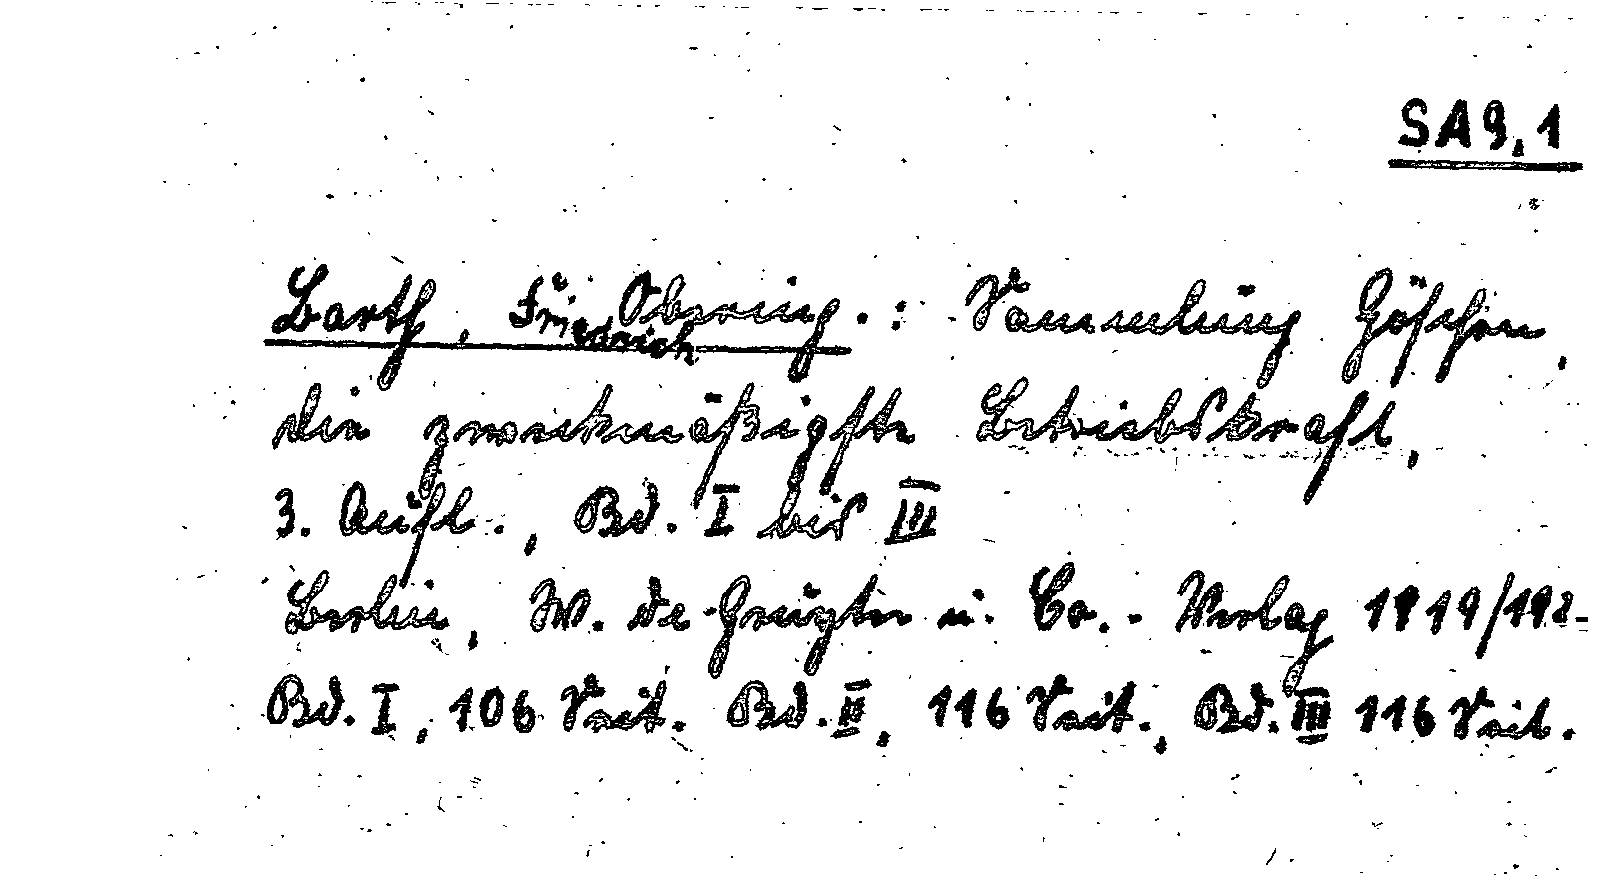 SA 9,1
Barth, Friedrich Obering.: Sammlung Göschen,
die zweckmäßigste Betriebskraft,
3. Aufl., Bd. I bis III
Berlin, W. de Gruyter u. Co.-Verlag 1919/192-
Bd. I, 106 Seit. Bd. II, 116 Seit., Bd. III 116 Seit.